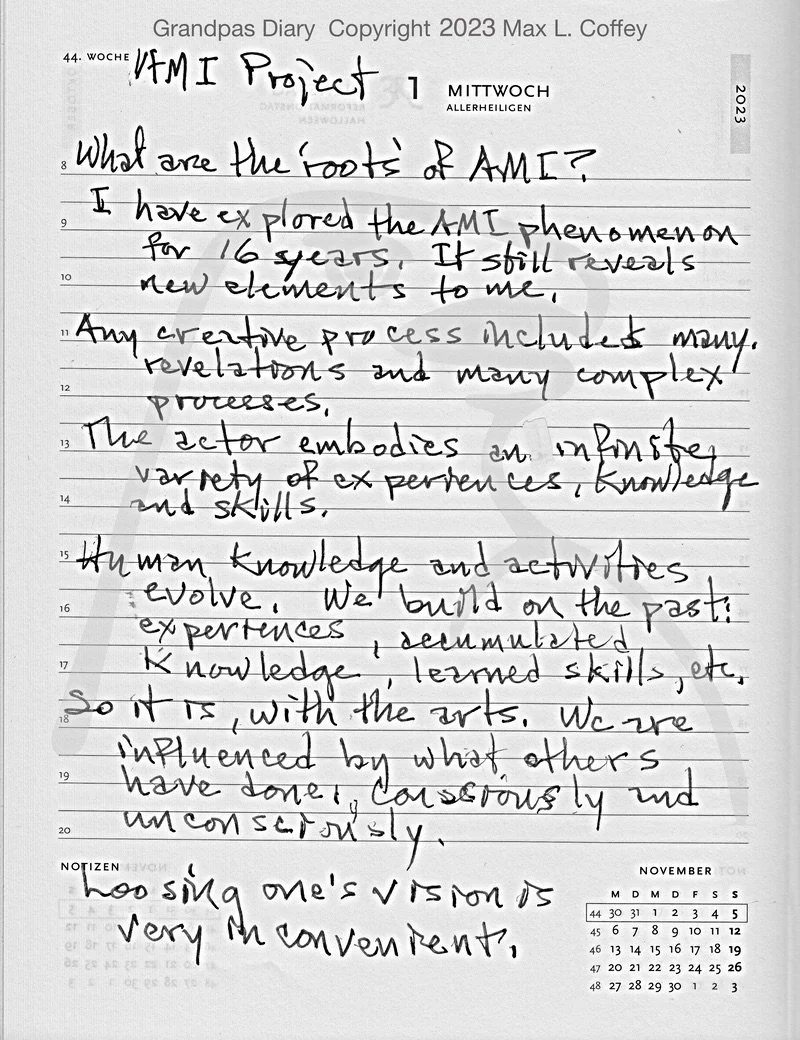 Grandpas Diary Copyright 2023 Max L. Coffey
44. WOCHE AMI Project 1 MITTWOCH
ALLERHEILIGEN
2023
8 What are the 'roots' of AMI?
I have explored the AMI phenomenon
9
for 16 years. It still reveals
10 new elements to me.
11 Any creative process includes many
revelations and many complex
12 processes.
13 The actor embodies an infinite
variety of experiences, knowledge
14 and skills.
15 Human knowledge and activities
evolve. We build on the past:
16 experiences, accumulated
17 knowledge, learned skills, etc.
So it is, with the arts. We are
18
influenced by what others
19 have done, consciously and
20 unconsciously.
NOTIZEN
Loosing one's vision is
very inconvenient.
NOVEMBER
M D M D F S S
44 30 31 1 2 3 4 5
45 6 7 8 9 10 11 12
46 13 14 15 16 17 18 19
47 20 21 22 23 24 25 26
48 27 28 29 30 1 2 3